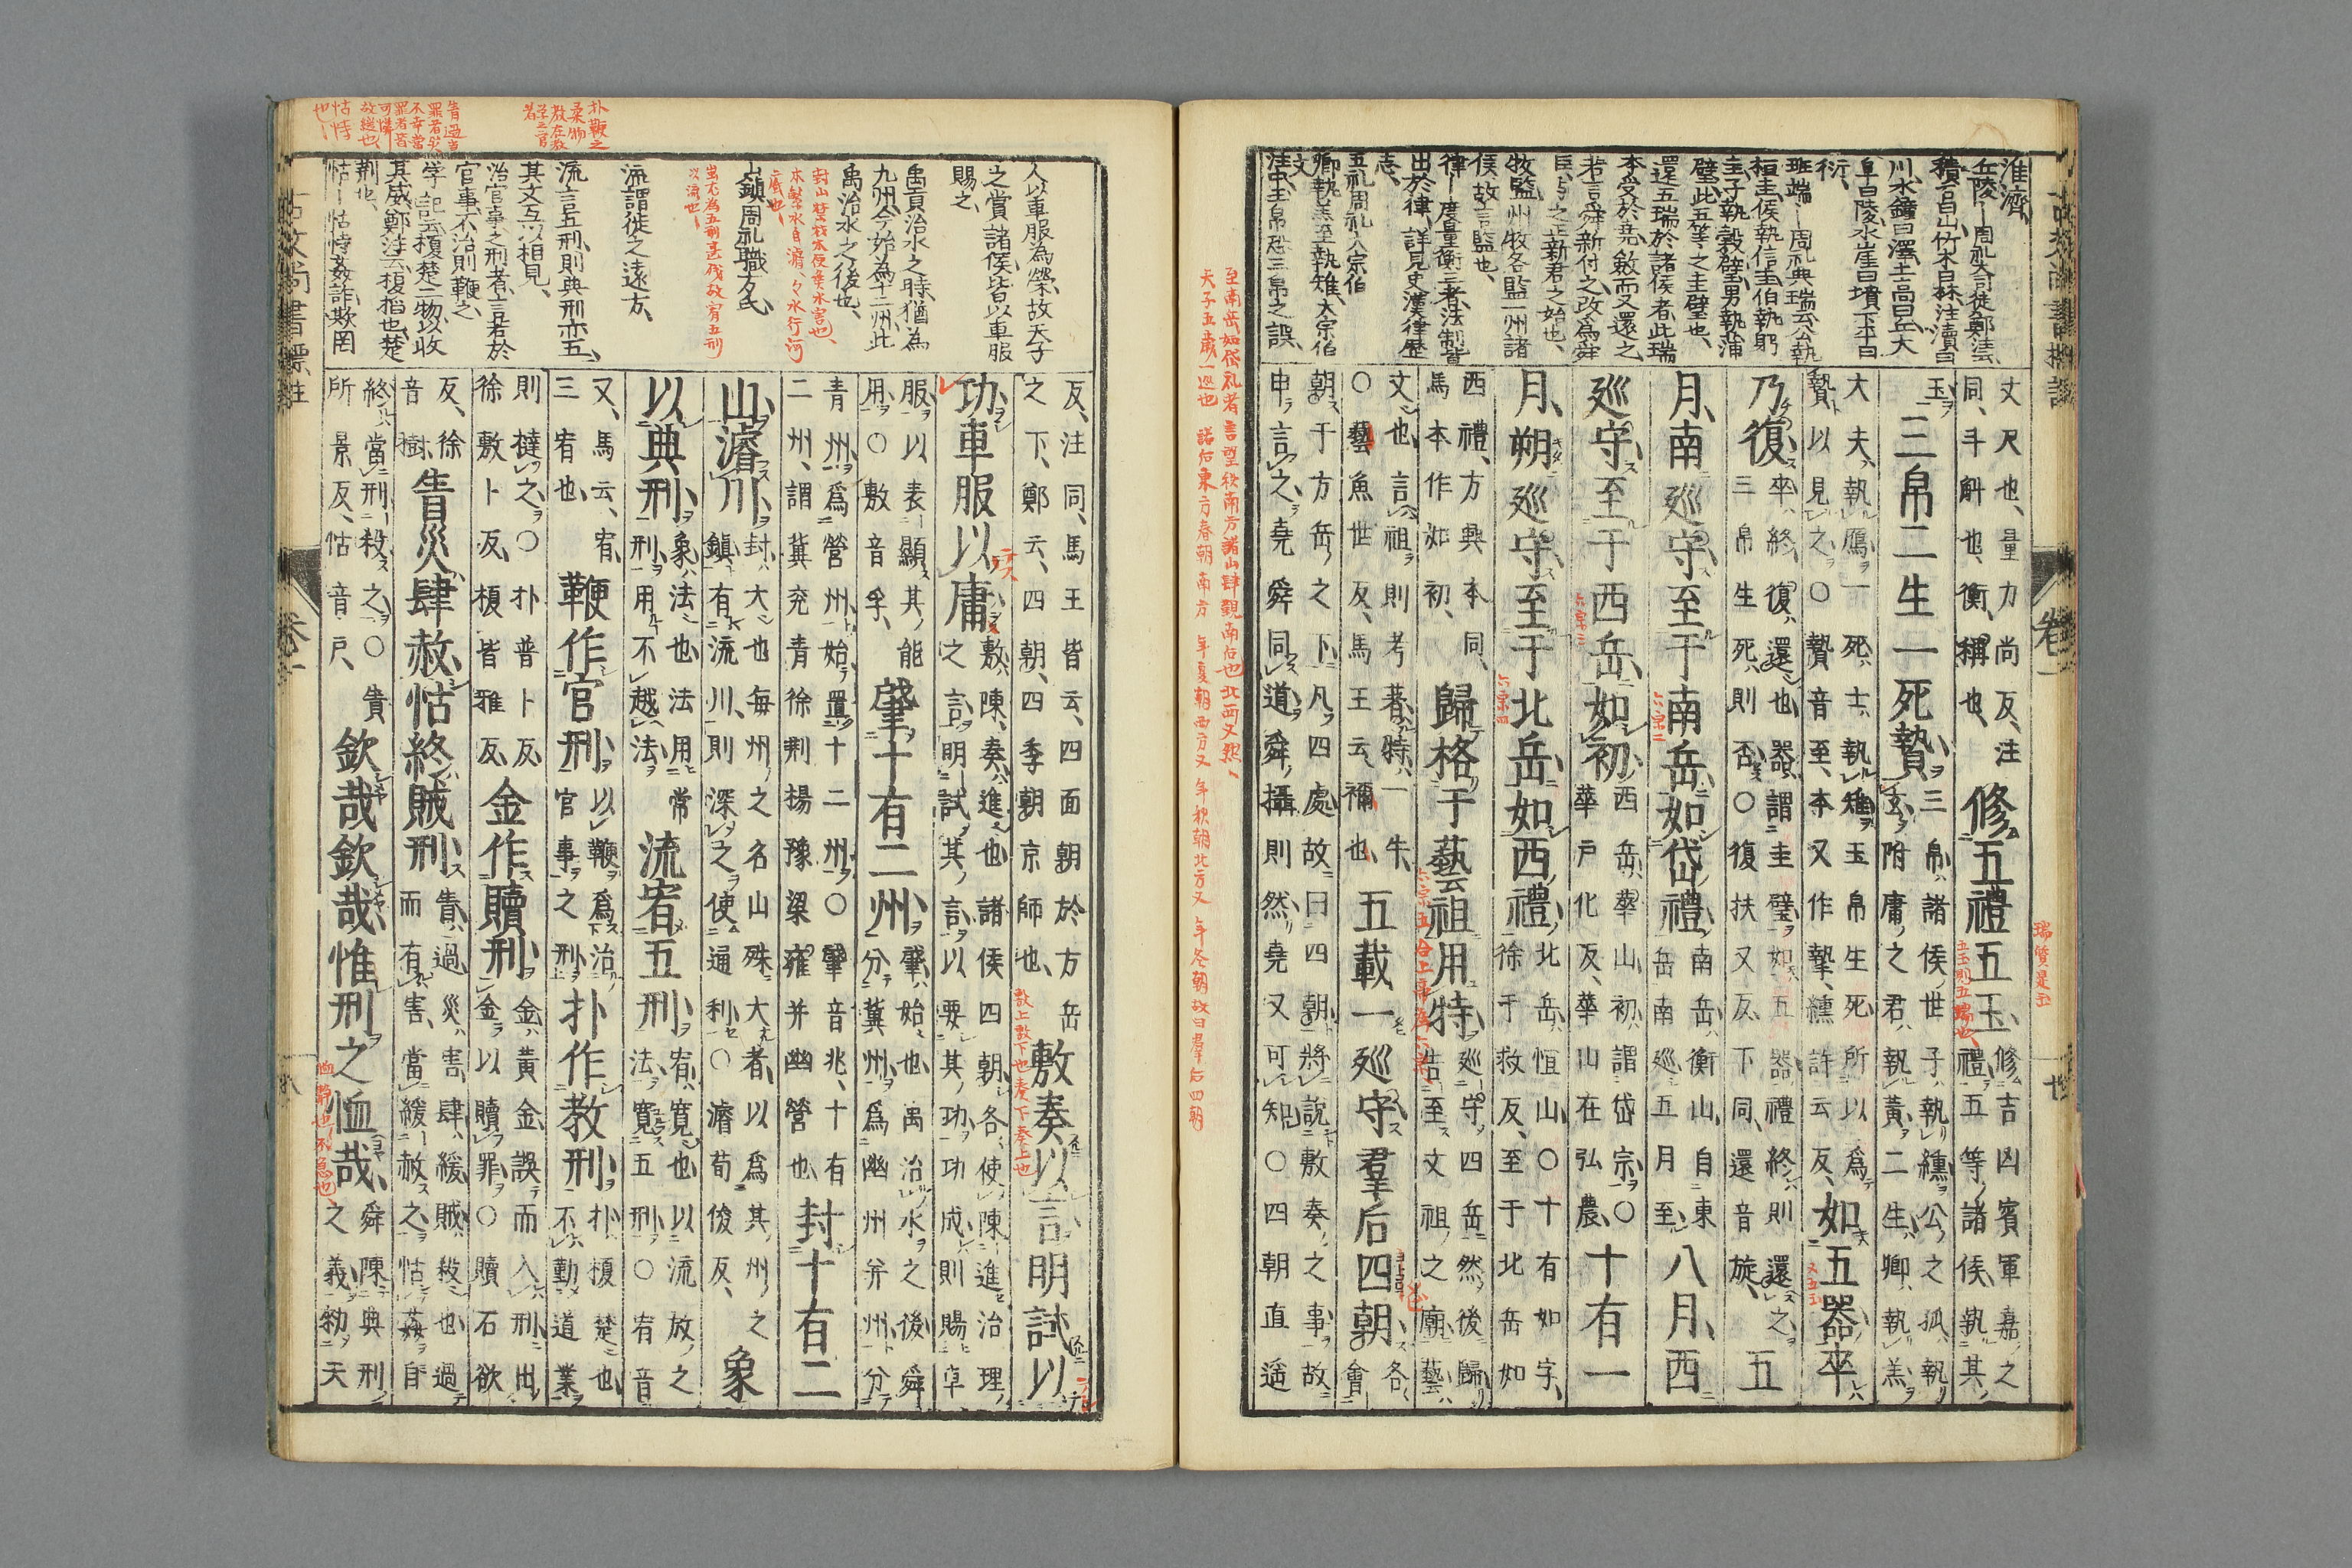 淮濟、
丘陵丨周礼大司徒鄭注云
積石曰山竹木曰林注瀆曰
川水鐘曰澤土高曰丘大
阜曰陵水崖曰墳下平曰
衍、
班瑞丨周礼典瑞云公執
桓圭侯執信圭伯執躬
圭子執穀璧男執蒲
璧此五等之圭璧也、
還五瑞於諸侯者此瑞
本受於堯斂而又還之
若言舜新付之改為舜
臣与之正新君之始也、
牧監、州牧各監一州諸
侯故言監也、
律丨度量衡三者法制皆
出於律、詳見史漢律歷
志、
五礼周礼大宗伯
卿執羔至執雉、大宗伯
注中玉帛恐三帛之誤、
丈尺也、量力尚反、注
同、斗斛也、衡、稱也、
修五禮五玉
修吉凶賓軍嘉之
禮五等諸侯執其
玉
三帛二生一死贄
三帛諸侯世子執纁公之孤執
玄附庸之君執黃二生卿執羔
大夫執鴈一死士執雉玉帛生死所以爲
贄以見之○贄音至、本又作摯、纁許云反、
如五器卒
乃復
卒終、復還也、器謂圭璧如五器禮終則還之
三帛生死則否○復扶又反下同還音旋、
五
月南巡守至于南岳如岱禮
南岳衡山自東
岳南巡五月至
八月西
巡守至于西岳如初
西岳華山初謂岱宗○
華戶化反華山在弘農
十有一
月朔巡守至于北岳如西禮
北岳恒山○十有如字、
徐于救反、至于北岳如
西禮、方興本同、
馬本作如初、
歸格于藝祖用特
巡守四岳然後歸
告至文祖之廟藝
文也言祖則考著特一牛、
○藝魚世反、馬王云、禰也、
五載一巡守群后四朝
各
會
朝于方岳之下凡四處故曰四朝將說敷奏之事故
申言之堯舜同道舜攝則然堯又可知○四朝直遙
瑞質是玉
五玉則五瑞也、
又五玉
六宗二
六宗三
六宗四
至南岳如岱礼者言望秩南方諸山肆覲南后也北西又然、
天子五歲一巡也 諸后東方春朝南方 年夏朝西方又 年秋朝北方又 年冬朝故曰群后四朝
卷一
人以車服為榮、故天子
之賞諸侯皆以車服
賜之、
禹貢治水之時猶為
九州今始為十二州此
禹治水之後也、
鎮周礼職方氏、
流謂徙之遠方、
流言五刑、則典刑亦五、
其文互以相見、
治官事之刑者、言若於
官事不治則鞭之、
学記云榎楚二物以收
其威、鄭注云榎稻也楚
荆也、
怙丨怙恃姦詐欺罔
反、注同、馬王皆云、四面朝於方岳
之下、鄭云、四朝、四季朝京師也、
敷奏以言明試以
功車服以庸
敷陳、奏進也諸侯四朝各使陳進治理
之言明試其言以要其功功成則賜車
服以表顯其能
用○敷音孚、
肇十有二州
肇始也禹治水之後舜
分冀州爲幽州并州分
青州爲營州始置十二州○肇音兆、十有
二州、謂冀兗青徐荆揚豫梁雍并幽營也
封十有二
山濬川
封大也每州之名山殊大者以爲其州之
鎮有流川則深之使通利○濬荀俊反、
象
以典刑
象法也法用常
刑用不越法
流宥五刑
宥寬也以流放之
法寬五刑○宥音
又、馬云、宥、
三宥也、
鞭作官刑
以鞭爲治
官事之刑
扑作教刑
扑榎楚也
不勤道業
則撻之○扑普卜反
徐敷卜反、榎皆雅反、
金作贖刑
金黃金誤而入刑出
金以贖罪○贖石欲
反、徐
音樹、
眚災肆赦怙終賊刑
眚過災害肆緩賊殺也過
而有害當緩赦之怙姦自
終當刑殺之○眚
所景反、怙音戶、
欽哉欽哉惟刑之恤哉
舜陳典刑
之義勑天
扑鞭之
柔物
教在教
学之官
者
眚過害
罪者災
不幸當
罪者皆
可憐
故緩也
怙恃
也
敷上敷下也奏下奏上也
古文尚書標註
卷一
八